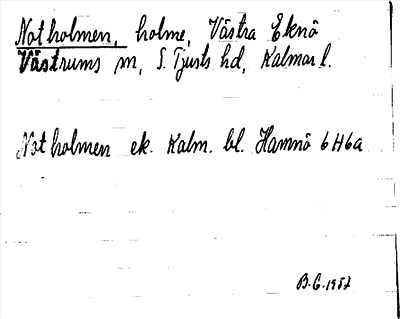 Notholmen, holme, Västra Eknö
Västrums sn, S. Tjusts hd, Kalmar l.
Notholmen ek. Kalm. bl. Hamnö 6H6a
B.G. 1957